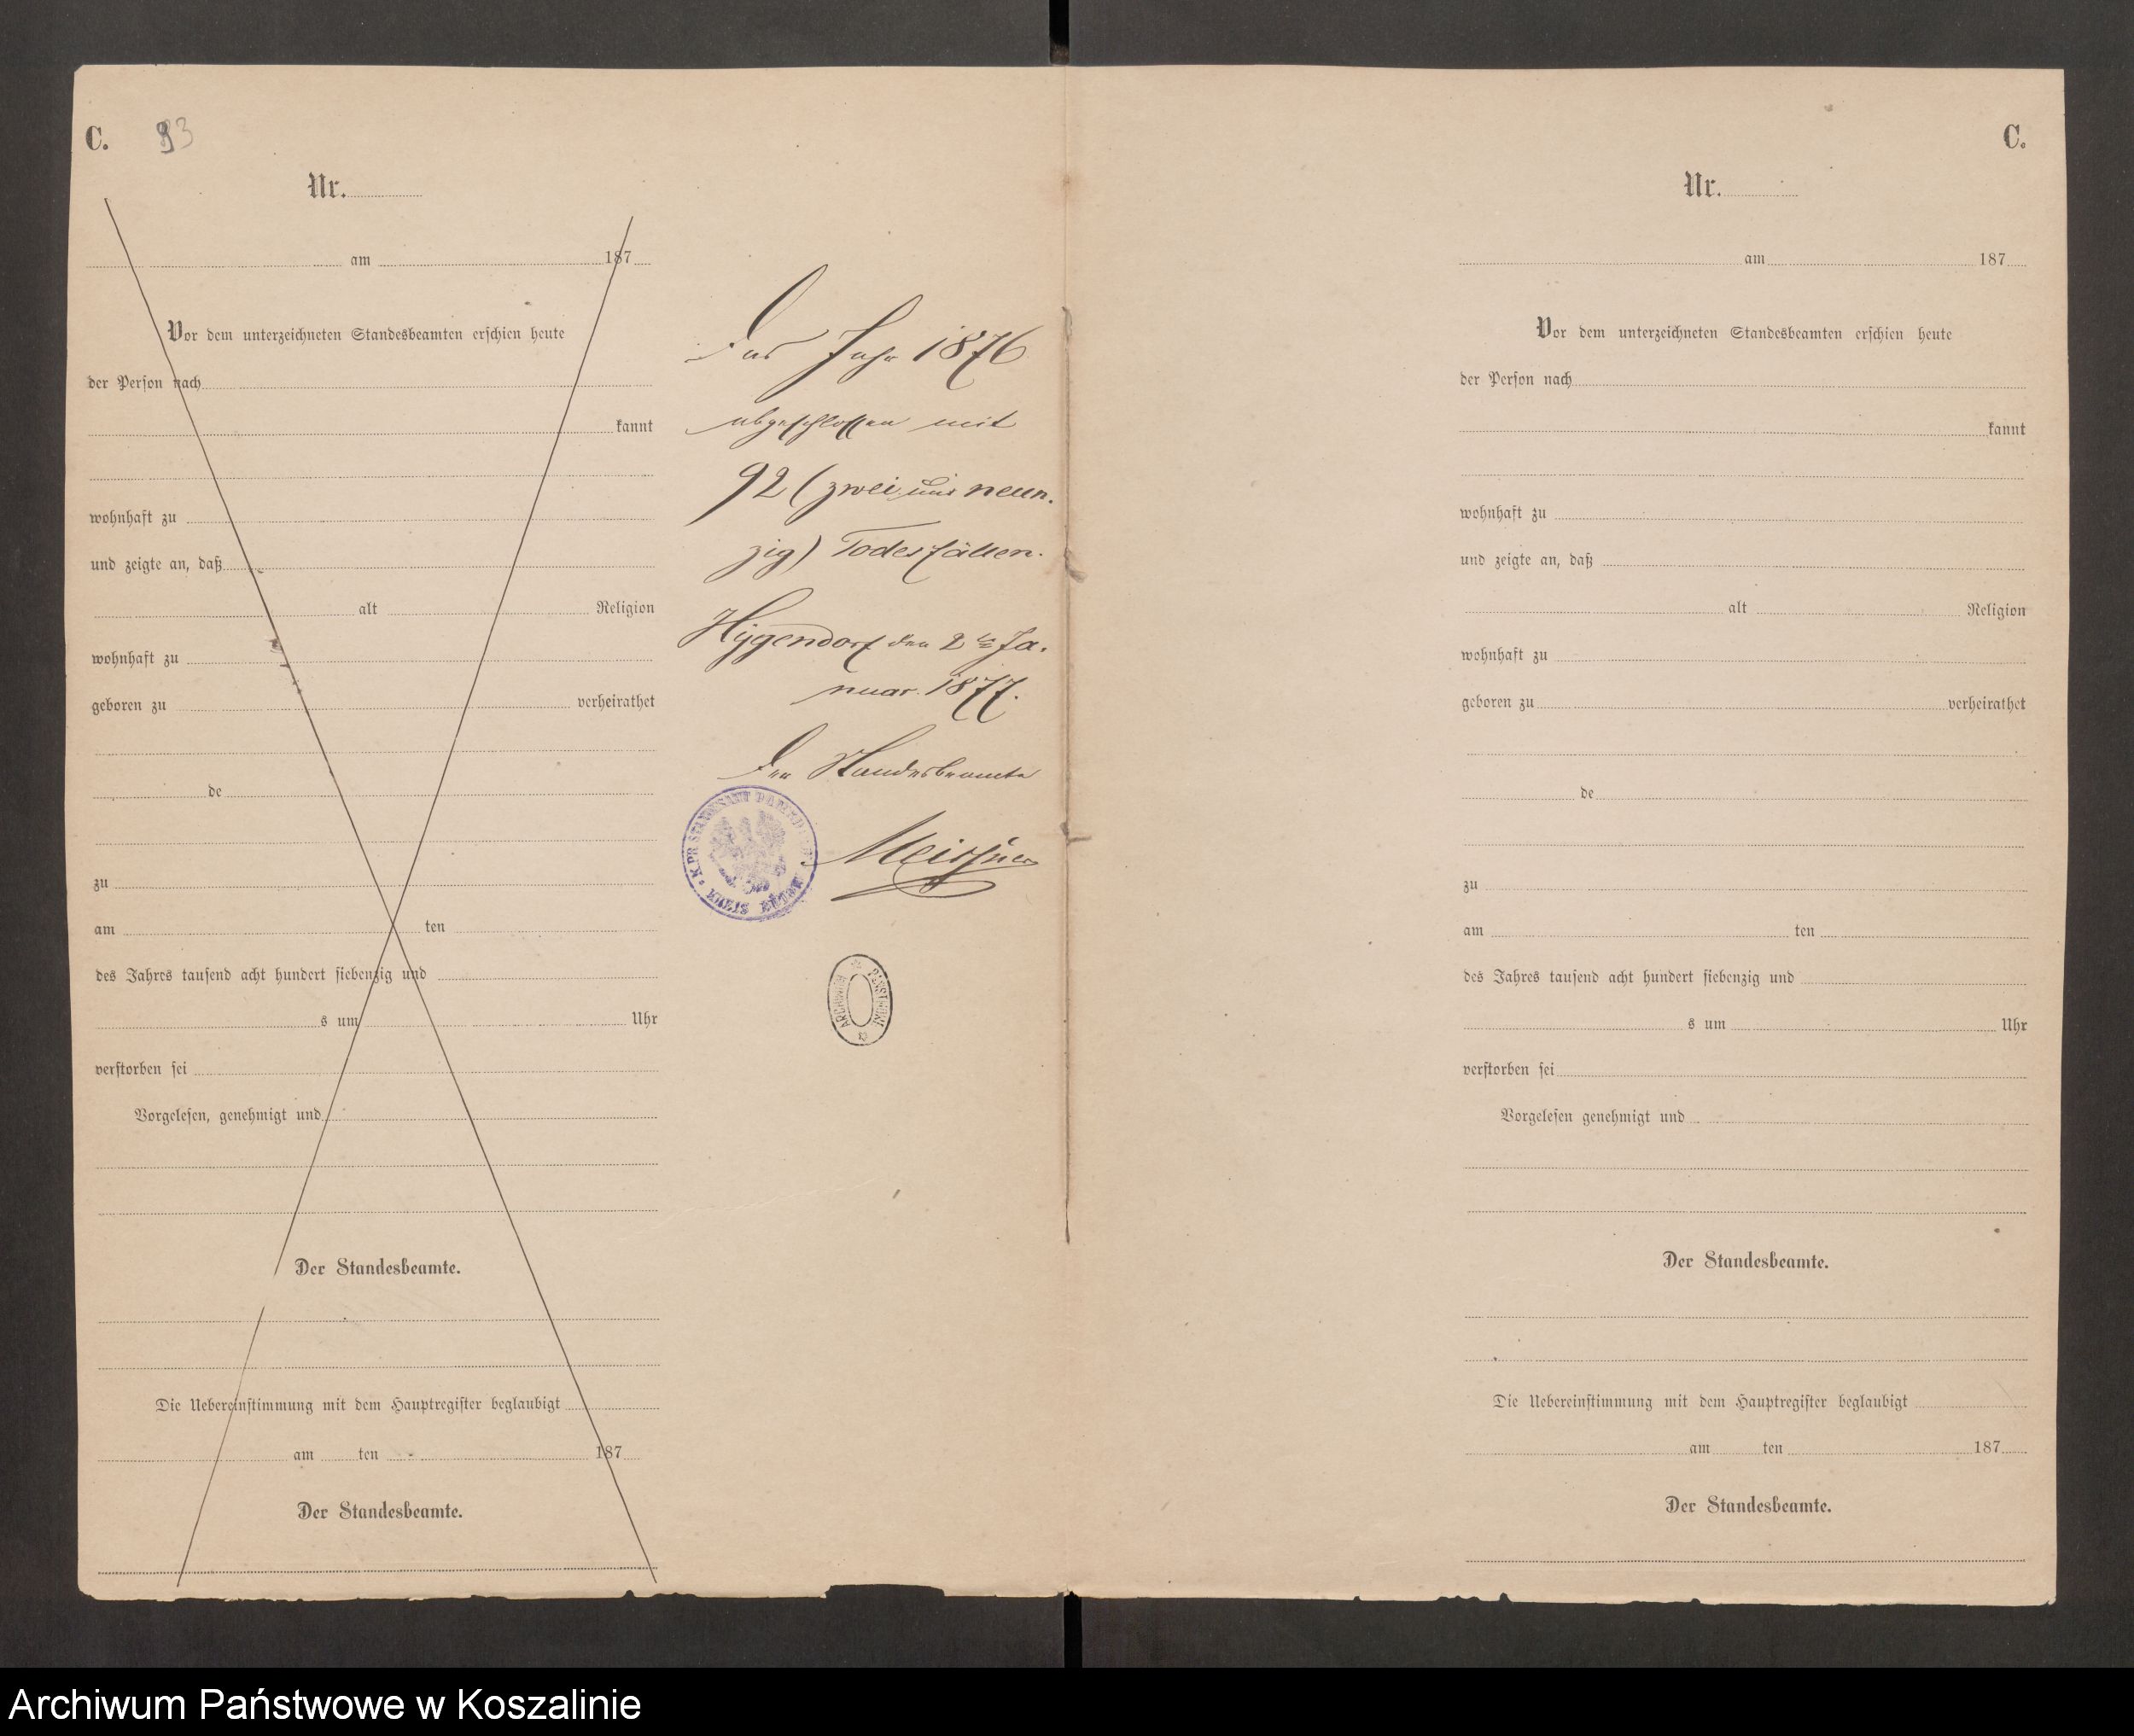 C. 93
Nr.
am 187
Vor dem unterzeichneten Standesbeamten erschien heute
der Person nach
kannt
wohnhaft zu
und zeigte an, daß
alt Religion
wohnhaft zu
geboren zu verheirathet
de
zu
am ten
des Jahres tausend acht hundert siebenzig und
s um Uhr
verstorben sei
Vorgelesen, genehmigt und
Der Standesbeamte.
Die Uebereinstimmung mit dem Hauptregister beglaubigt
am ten 187
Der Standesbeamte.
Das Jahr 1876
abgeschlossen mit
92 (zwei und neun-
zig) Todesfällen.
den 2 Ja-
nuar 1877.
Der Standesbeamte
Meissner
K. PR. STANDESAMT
ARCHIWUM PAŃSTWOWE
C.
Nr.
am 187
Vor dem unterzeichneten Standesbeamten erschien heute
der Person nach
kannt
wohnhaft zu
und zeigte an, daß
alt Religion
wohnhaft zu
geboren zu verheirathet
de
zu
am ten
des Jahres tausend acht hundert siebenzig und
s um Uhr
verstorben sei
Vorgelesen genehmigt und
Der Standesbeamte.
Die Uebereinstimmung mit dem Hauptregister beglaubigt
am ten 187
Der Standesbeamte.
Archiwum Państwowe w Koszalinie